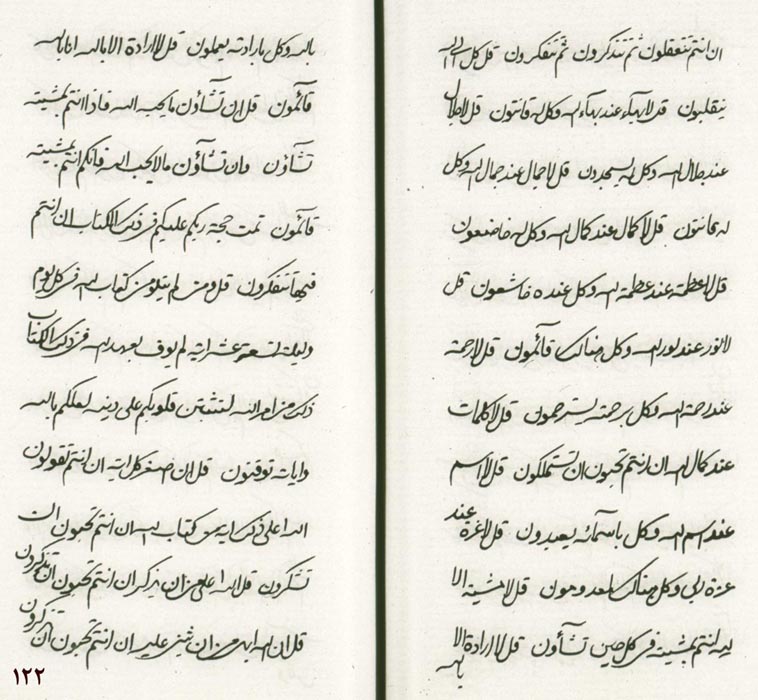 ان انتم تتعقلون ثم تتذكرون ثم تتفكرون قل كل الى الله
ينقلبون قل لا بهاء عند بهاء الله وكل له قانتون قل لا جلال
عند جلال الله وكل له يسجدون قل لا جمال عند جمال الله وكل
له قانتون قل لا كمال عند كمال الله وكل له خاضعون
قل لا عظمة عند عظمة الله وكل عنده خاشعون قل
لا نور عند نور الله وكل هنالك قائمون قل لا رحمة
عند رحمة الله وكل برحمته يسترحمون قل لا كلمات
عند كمال الله ان انتم تحبون ان تستملكون قل لا اسم
عند اسم الله وكل باسمائه يعبدون قل لا عزة عند
عزة ربي وكل هنالك قل لا مشية الا
لله انتم بمشيته في كل حين تشاؤن قل لا ارادة الا
بالله
بالله وكل بارادته يعملون قل لا ارادة الا بالله انا بالله
قائمون قل ان تشاؤن ما يحب الله فاذا انتم بمشيته
تشاؤن وان تشاؤن ما لا يحب الله فانكم انتم بمشيته
قائمون تمت حجة ربكم عليكم في ذلك الكتاب ان انتم
فيها تتفكرون قل ومن لم يتلو من كتاب الله في كل يوم
وليلة تسعة عشر اية لم يوف بعهد الله في ذلك الكتاب
ذلك من امر الله لتثبتن قلوبكم على دينه لعلكم بالله
واياته توقنون قل ان صغر كل اية ان انتم تقولون
الله اعلى ذكر اية من كتاب الله ان انتم تحبون ان
تشكرون قل الله اعلى من ان يذكر ان انتم تحبون ان تذكرون
قل ان الله ابهى من ان يثنى عليه ان انتم تحبون ان تذكرون
١٢٢